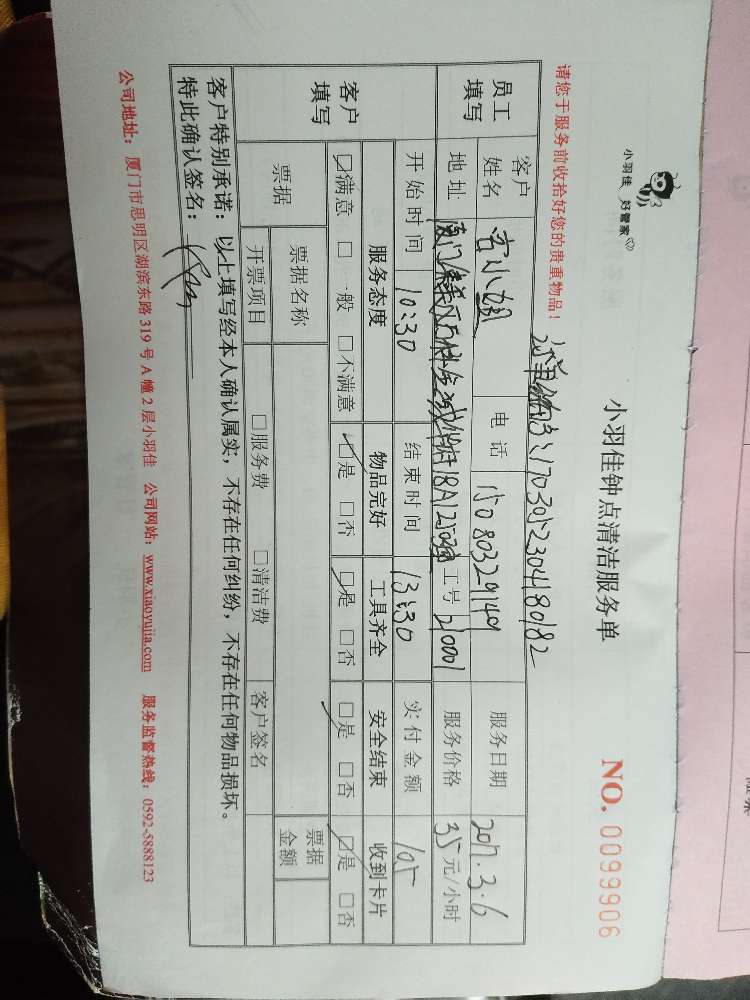 小羽佳 好管家
小羽佳钟点清洁服务单
NO. 0099906
请您于服务前收拾好您的贵重物品!
1703052304180182
员工填写
客户姓名 小姐 电话 15080329149 服务日期 2017.3.6
地址 厦门 18A1250 工号 210001 服务价格 35元/小时
开始时间 10:30 结束时间 13:30 实付金额 105
客户填写
服务态度 物品完好 工具齐全 安全结束 收到卡片
☑满意 □一般 □不满意 ☑是 □否 ☑是 □否 ☑是 □否 ☑是 □否
票据 票据名称 票据金额
开票项目 □服务费 □清洁费 客户签名
客户特别承诺:以上填写经本人确认属实,不存在任何纠纷,不存在任何物品损坏。
特此确认签名:
公司地址:厦门市思明区湖滨东路319号A幢2层小羽佳 公司网站:www.xiaoyujia.com 服务监督热线:0592-5888123